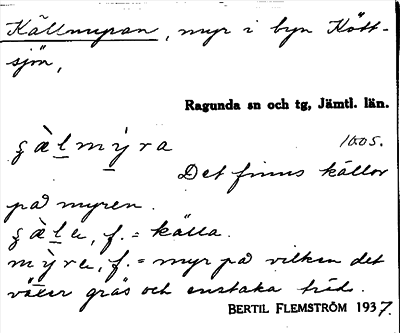 Källmyran, myr i byn Kött-
sjön,
Ragunda sn och tg, Jämtl. län.
1005.
Det finns källor
på myren.
f. = källa.
f. = myr på vilken det
växer gräs och enstaka träd.
BERTIL FLEMSTRÖM 1937.